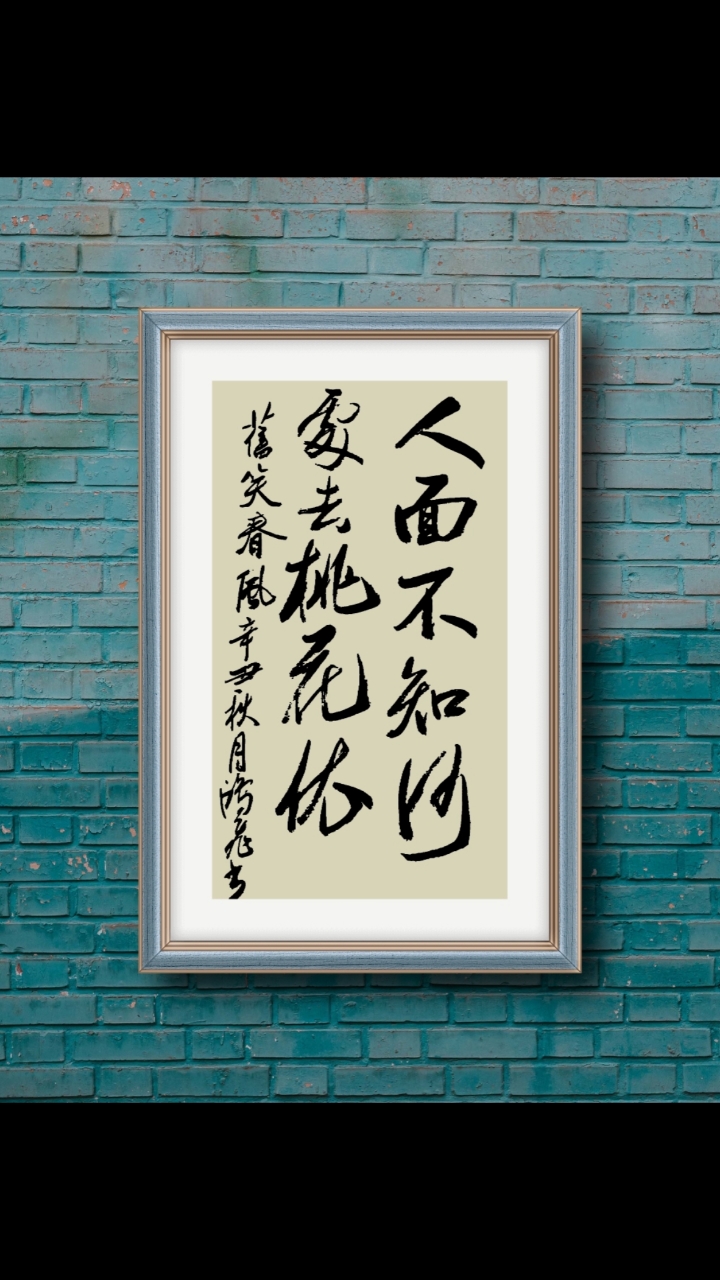 人面不知何
處去桃花依
舊笑春風辛丑秋月鴻飛書